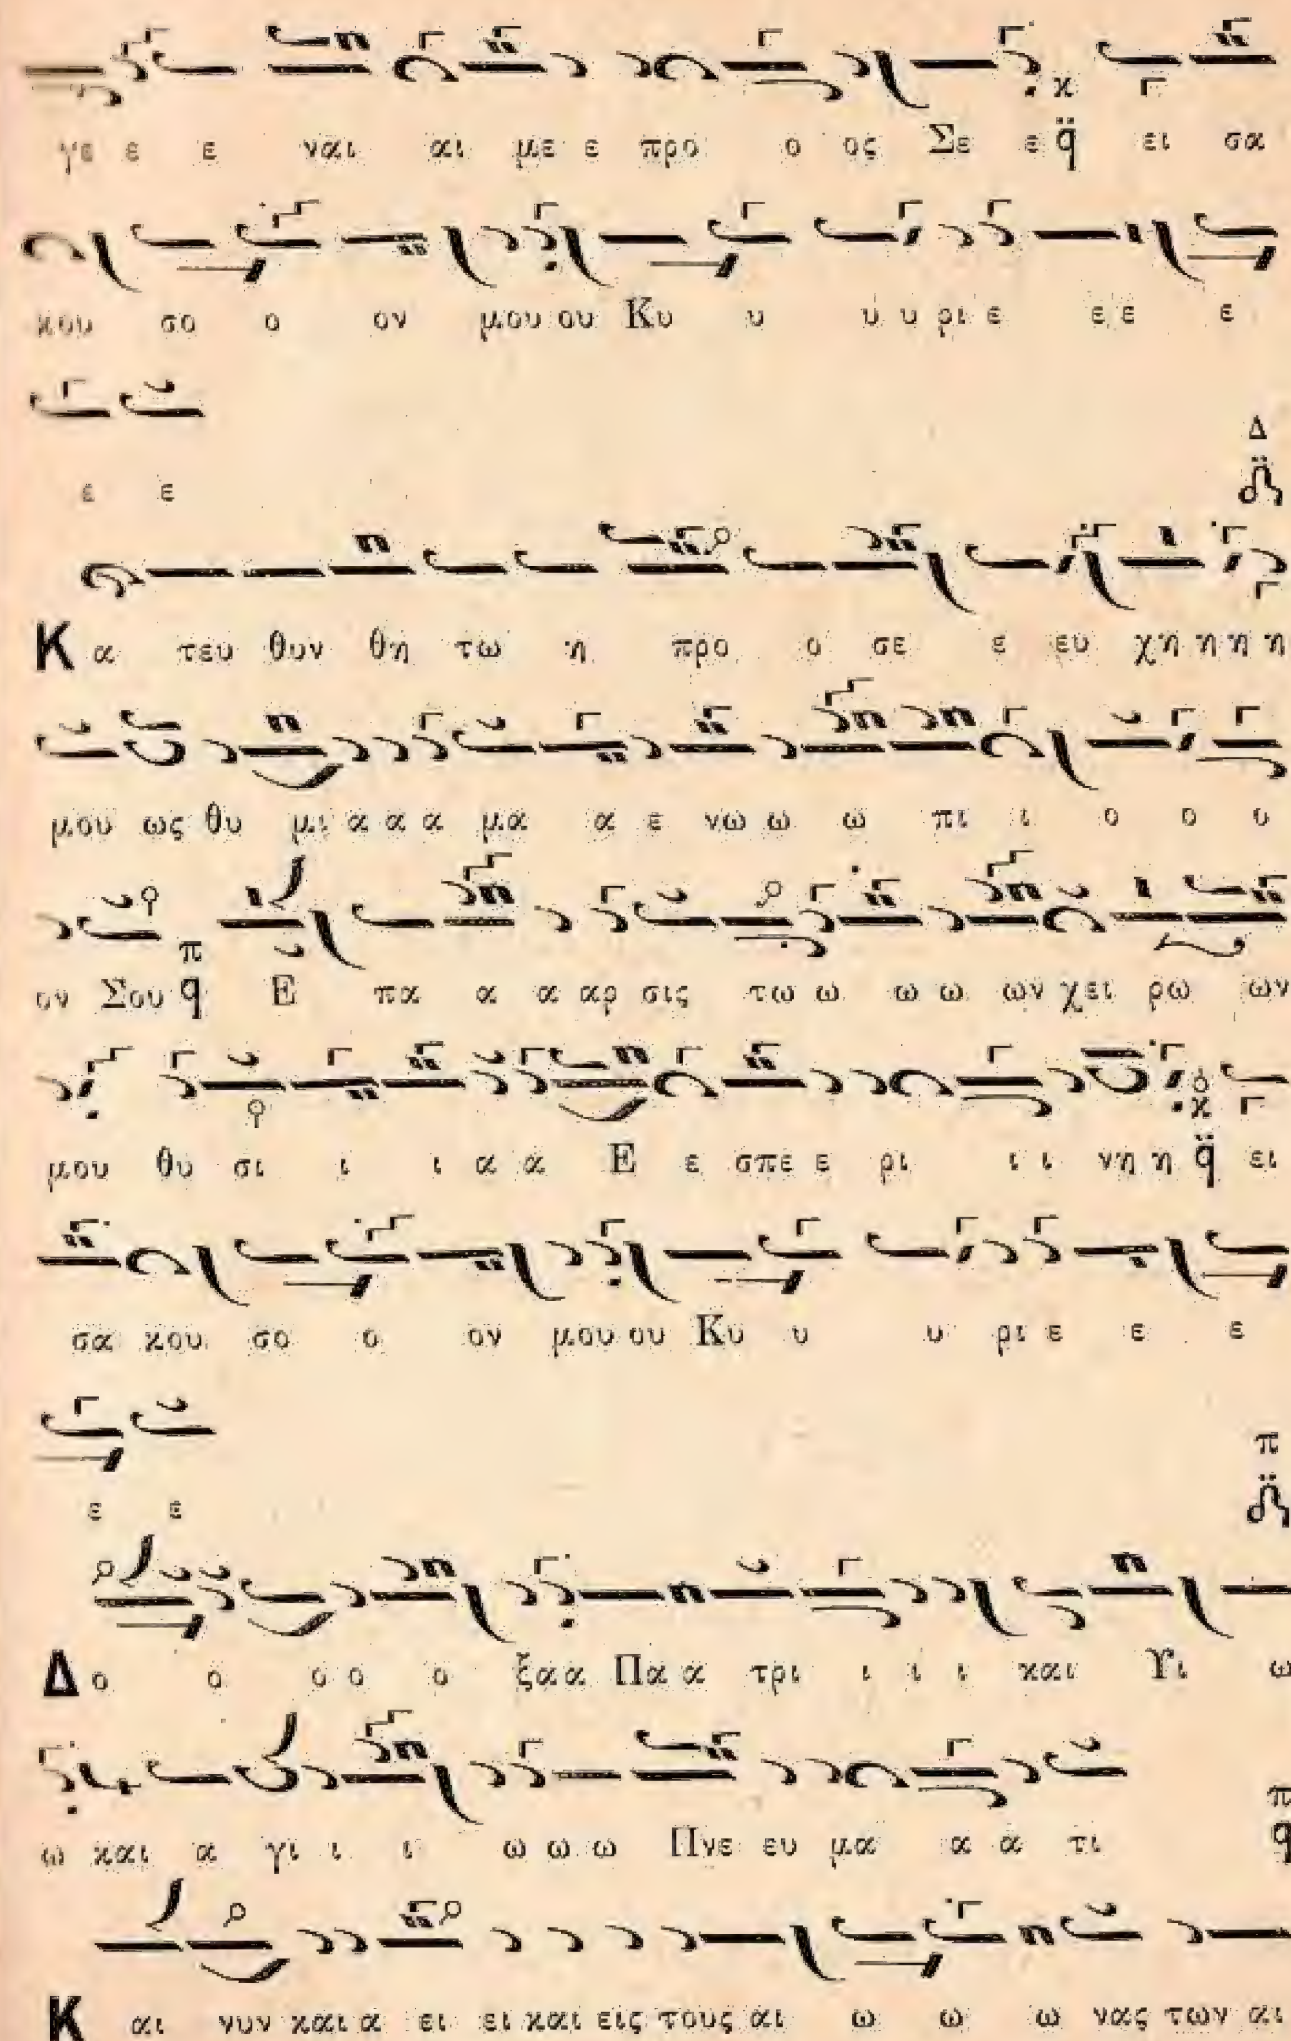 γε ε ε ναι αι με ε προ ο ος Σε ε q̈ ει σα
κου σο ο ον μου ου Κυ υ υ υ ριε ε ε ε
ε ε
Κ α τευ θυν θη τω η προ ο σε ε ευ χη η η η
μου ως θυ μι α α α μα α ε νω ω ω πι ι ο ο ο
ον Σου q Ε πα α α αρ σις τω ω ω ω ων χει ρω ων
μου θυ σι ι ι α α Ε ε σπε ε ρι ι ι νη η q̈ ει
σα κου σο ο ον μου ου Κυ υ υ ρι ε ε ε
ε ε
Δ ο ο ο ο ο ξα α Πα α τρι ι ι ι και Υι ω
ω και α γι ι ι ω ω ω Πνε ευ μα α α τι
Κ αι νυν και α ει ει και εις τους αι ω ω ω νας των αι